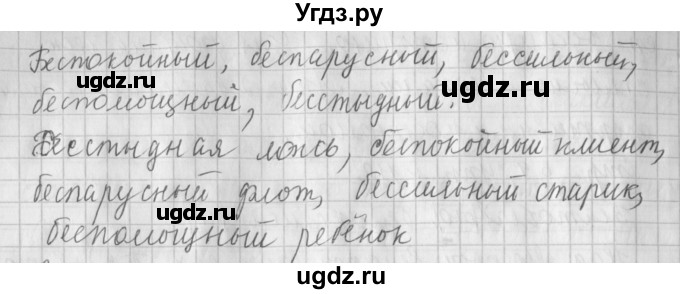 Угдз.ру
Беспокойный, беспарусный, бессильный,
беспомощный, бесстыдный.
Бесстыдная ложь, беспокойный клиент,
беспарусный флот, бессильный старик,
беспомощный ребёнок
ugdz.ru
ugdz.ru
ugdz.ru
ugdz.ru
ugdz.ru